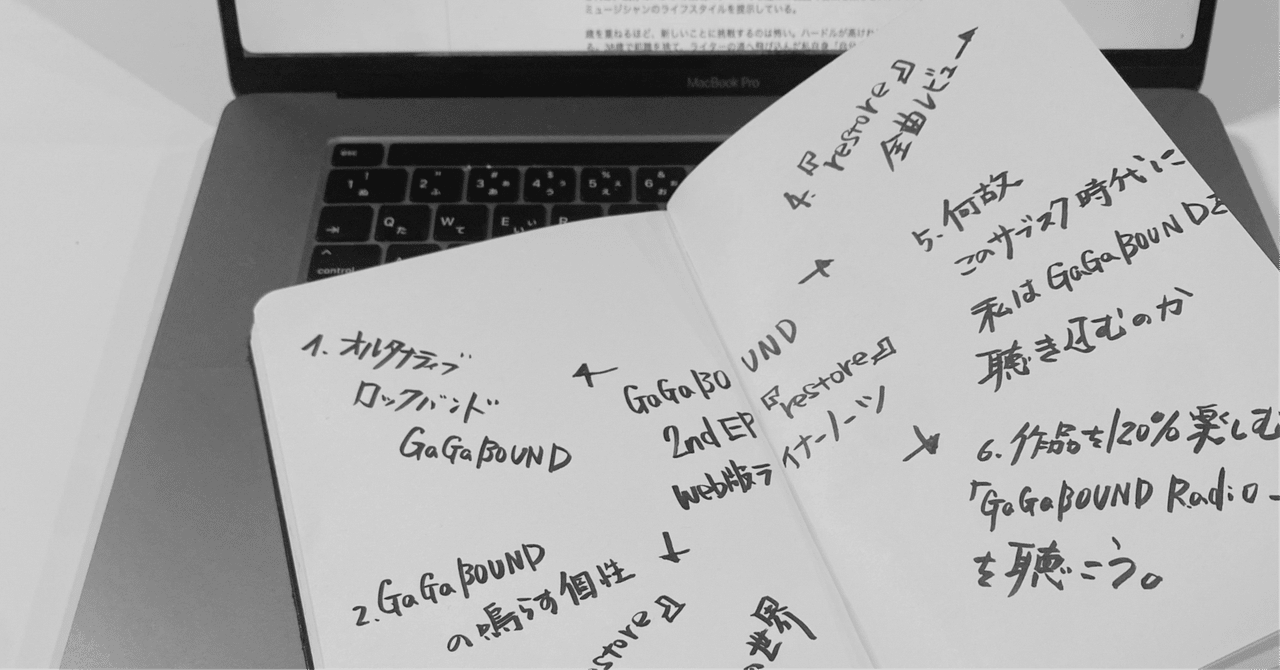 ミュージシャンのライフスタイルを提示している。
歳を重ねるほど、新しいことに挑戦するのは怖い。ハードルが高け
る。38歳で前職を捨て、ライターの道へ飛び込んだ私自身「自分
MacBook Pro
esc
1 ! ぬ
2 " ふ
3 # あ
4 $ う
5 % え
6 & お
Q た
W て
E い
control
1. オルタナティブ
ロックバンド
GaGaβOUND
GaGaβOUND
2nd EP『restore』
web版ライナーノーツ
2. GaGaβOUND
の鳴らす個性
store』
の世界
4.『restore』
全曲レビュー
5. 何故
このサブスク時代に
私はGaGaβOUNDを
聴き込むのか
6. 作品を120%楽しむ
「GaGaβOUND Radio
を聴こう。